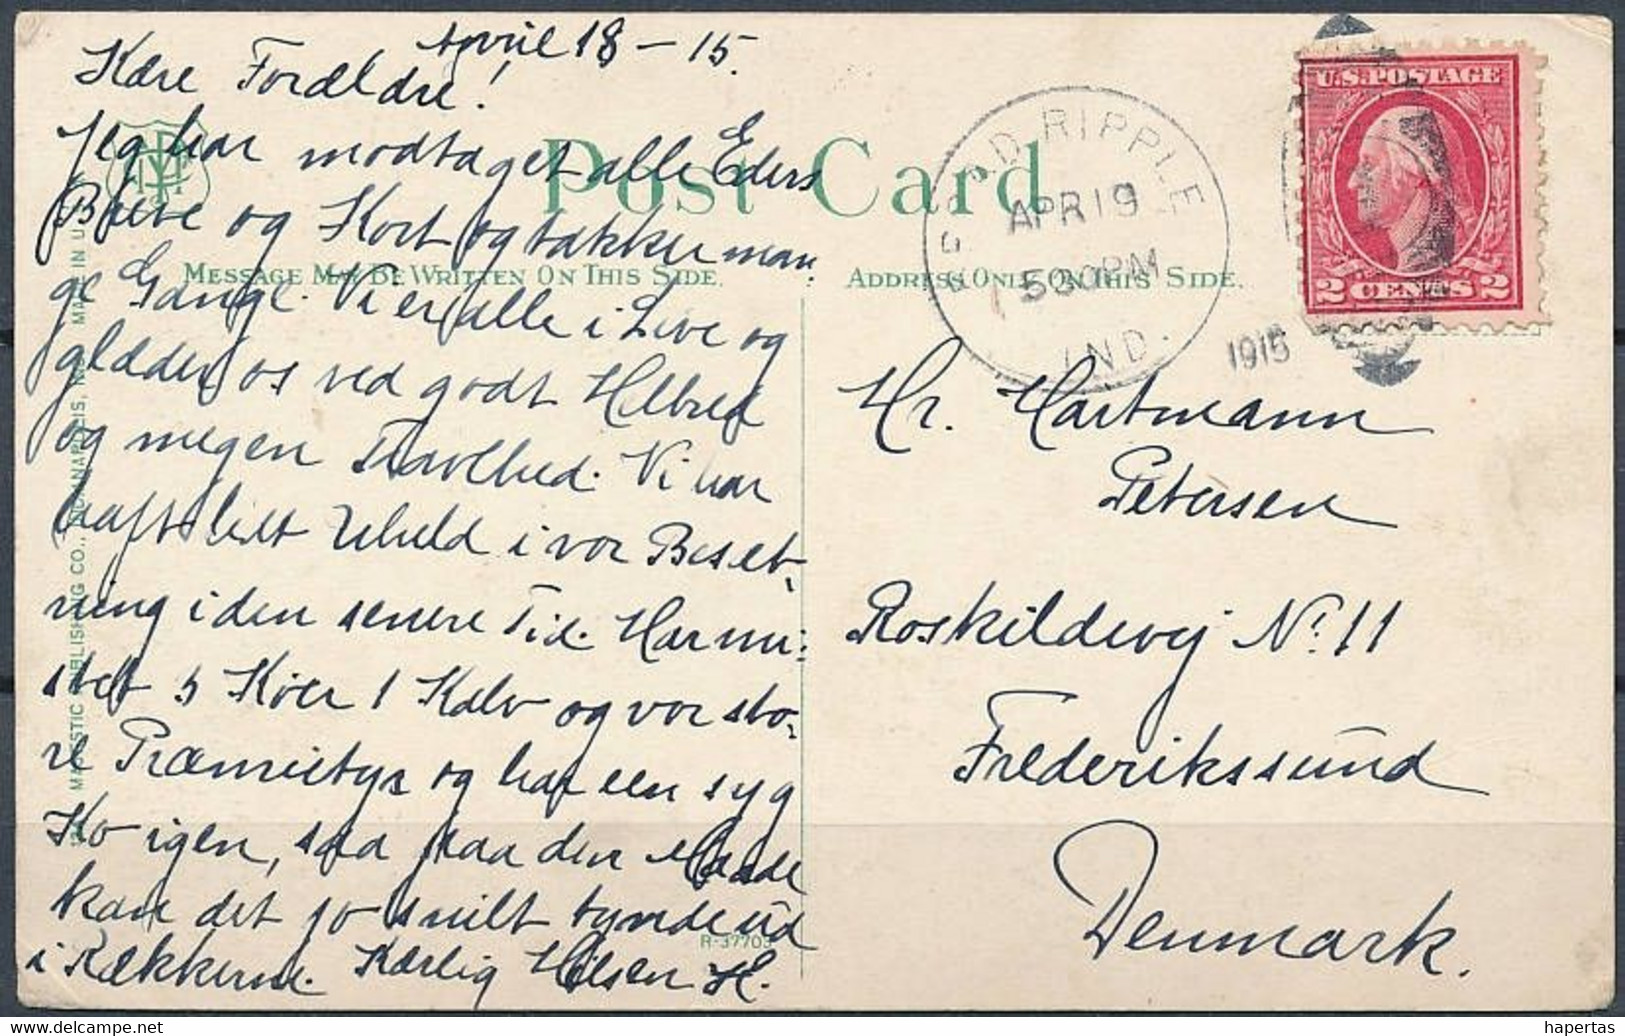 April 18 – 15.
Kære Forældre!
Jeg har modtaget alle Eders
Breve og Kort og takker man-
ge Gange. Vi er alle i Live og
glæder os ved godt Helbred
og megen Travlhed. Vi har
haft lidt Uheld i vor Besæt-
ning i den senere Tid. Har mi-
stet 5 Køer 1 Kalv og vor sto-
re Præmietyr og har een syg
Ko igen, saa paa den Maade
kan det jo snilt tynde ud
i Rækkerne. Kærlig Hilsen H.
Post Card
MESSAGE MAY BE WRITTEN ON THIS SIDE.
ADDRESS ONLY ON THIS SIDE.
MAJESTIC PUBLISHING CO., INDIANAPOLIS, IND. MADE IN U.
R-37703
BROAD RIPPLE
APR 19
530PM
IND.
1915
U.S. POSTAGE
2 CENTS 2
Hr. Hartmann
Petersen
Roskildevej No. 11
Frederikssund
Denmark.
www.delcampe.net
hapertas